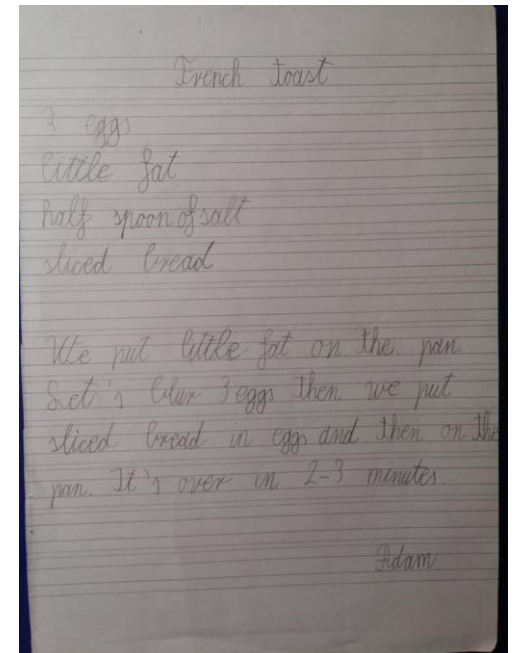 French toast
3 eggs
little fat
half spoon of salt
sliced bread
We put little fat on the pan
Let's blur 3 eggs then we put
sliced bread in eggs and then on the
pan. It's over in 2-3 minutes
Adam